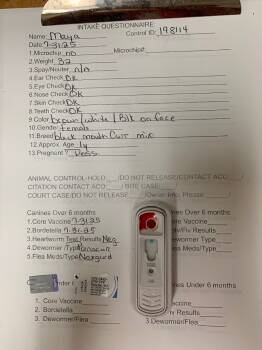 INTAKE QUESTIONNAIRE:
Name: Maya Control ID: 198114
Date: 7-31-25
1. Microchip: no Microchip#:
2. Weight: 32
3. Spay/Neuter: n/A
4. Ear Check OK
5. Eye Check OK
6. Nose Check OK
7. Skin Check OK
8. Teeth Check OK
9. Color brown/white/Blk on face
10. Gender female
11. Breed black mouth Cur mix
12. Approx. Age 1y
13. Pregnant?
ANIMAL CONTROL-HOLD /DO NOT RELEASE/CONTACT ACO
CITATION CONTACT ACO /BITE CASE
COURT CASE/DO NOT RELEASE /Owner Info. Please
Canines Over 6 months
1. Core Vaccine 7-31-25
2. Bordetella 7-31-25
3. Heartworm Test Results Neg.
4. Dewormer/Type
5. Flea Meds/Type Nexgard
Over 6 Months
/Fiv Results
Dewormer Type
Meds/Type
Under 6 Months
1. Core Vaccine
2. Bordetella
3. Dewormer/Flea
Results
3. Dewormer/Flea